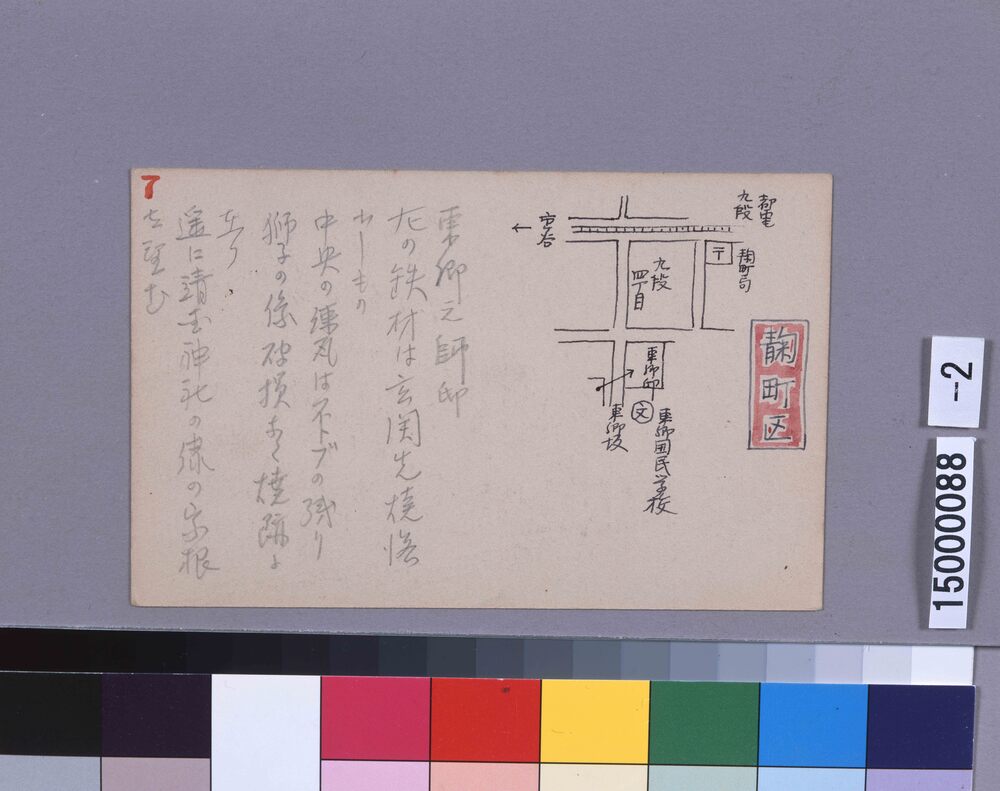 都電
九段
市谷
←
〒
麹町局
九段
四丁目
麹町区
東郷邸
文
東郷坂
東郷国民学校
東郷元帥邸
左の鉄材は玄関先焼落
ちしもの
中央の煉瓦は不トブの残り
獅子の像破損する焼跡に
在り
遥に靖国神社の緑の家根
を望む
7
-2
15000088